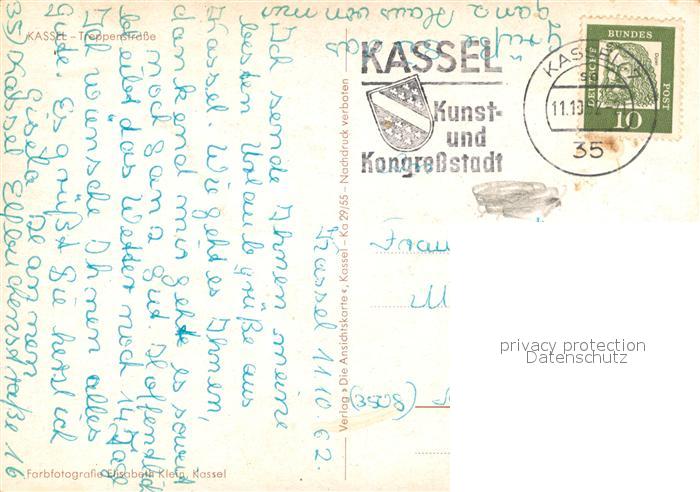 KASSEL – Treppenstraße
Grüße
ganz Haus von mir
KASSEL
Kunst-
und
Kongreßstadt
KASSEL
11.10.62
35
DEUTSCHE
BUNDES
POST
10
Kassel 11.10.62.
Ich sende Ihnen meine
besten Urlaubgrüße aus
Kassel. Wie geht es Ihnen,
dankend mir geht es soweit
noch ganz gut. Hoffendlich
bleibt das Wetter noch 14 Tage
Ich wünsche Ihnen alles
Gute. Es grüßt Sie herzlich
Gisela
35) Kassel Elfbuchenstraße 16
Verlag »Die Ansichtskarte«, Kassel – Ka 29/55 – Nachdruck verboten
Frau
(3508)
privacy protection
Datenschutz
Farbfotografie Elisabeth Klein, Kassel